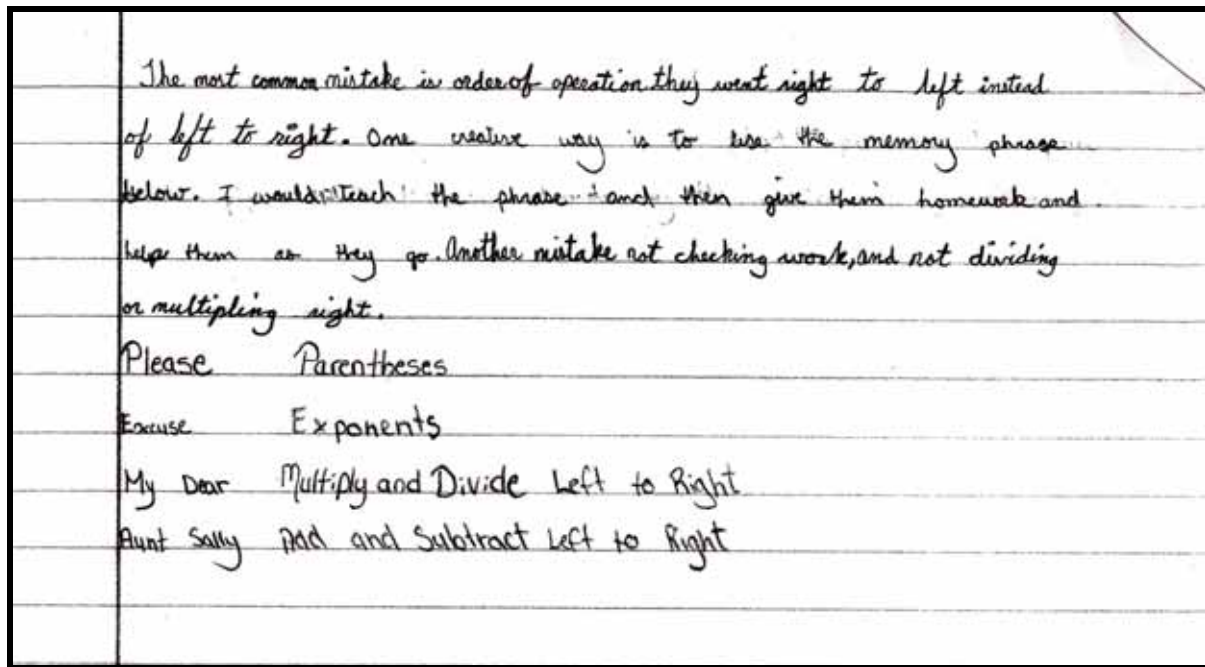 The most common mistake is order of operation they went right to left instead
of left to right. One creative way is to use the memory phrase
below. I would teach the phrase and then give them homework and
help them as they go. Another mistake not checking work, and not dividing
or multipling right.
Please Parentheses
Excuse Exponents
My Dear Multiply and Divide Left to Right
Aunt Sally Add and Subtract Left to Right